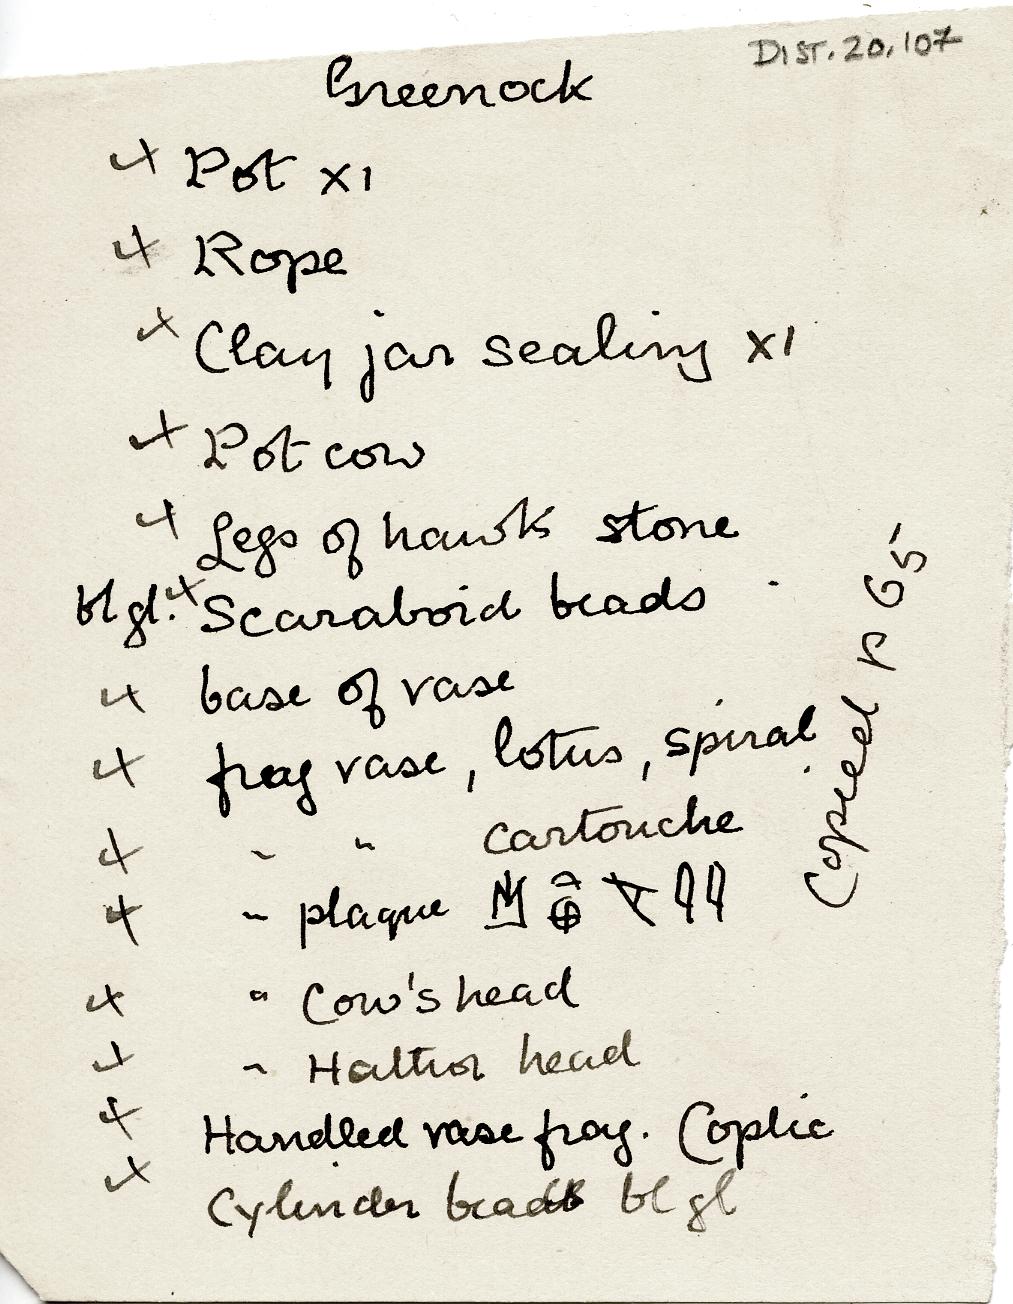 DIST.20.107
Greenock
Pot x1
Rope
Clay jar sealing x1
Pot cow
Legs of hawk stone
bl gl. Scaraboid beads
base of vase
frag vase, lotus, spiral
" " cartouche
" plaque
" Cow's head
" Hathor head
Handled vase frag. Coptic
Cylinder beads bl gl
Copied p G5